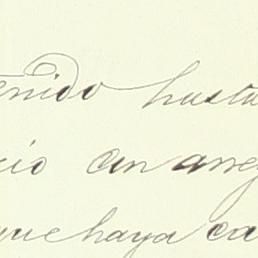 enido hasta
cio con arreg
que haya ca